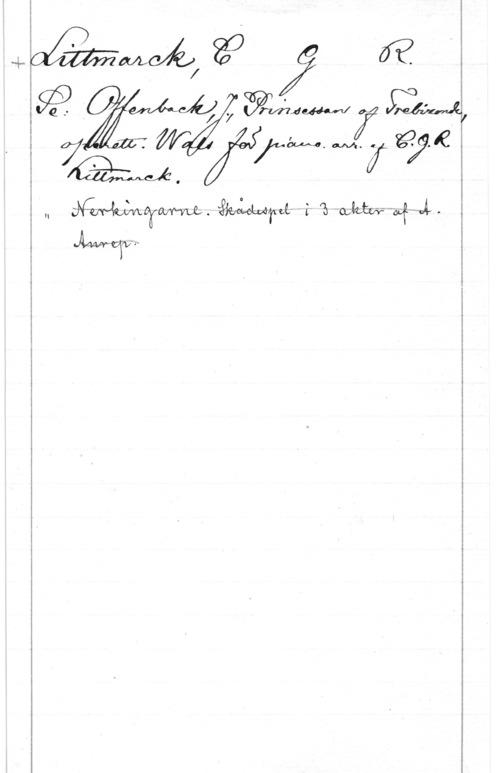 + Littmarck, C G R.
Se: Offenbach, J., Prinsessan af Trebizonde,
operett. Wals för piano. arr. af C. G. R.
Littmarck.
" Nerkingarne. Skådespel i 3 akter af A.
Anrep.